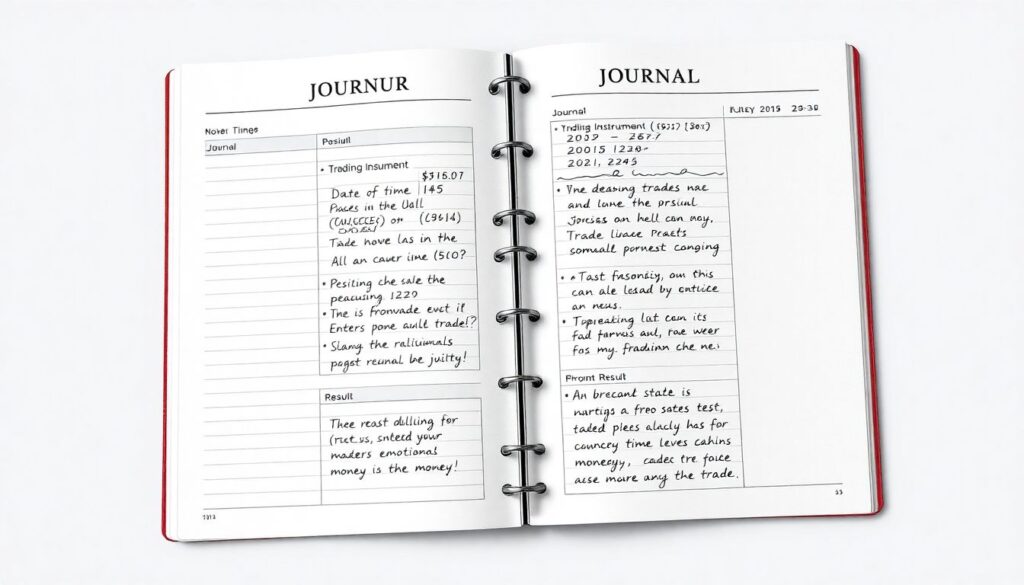 JOURNUR
Nover Tings
Journal
Pasiull
• Trading Insument
$315.07
Date of time 145
Praces in the Uall
on (C9614)
Tade hove las in the
All an caver iine (510?
• Pesiling che sale the
peacusing 1220
• The is fronvade evct if
Enters pone aulll trade!?
• Slamg the raliiumals
pogst reunal be juilty!
Result
Thee reast dilling for
(rut.us, snteed your
maders emotional
money is the money!
JOURNAL
Journal
2015 23-38
• Ynding Instrument
20015 1238-
2021, 2245
• Vne deasing trades nac
and lane the prsiual
Joresss an hell can noy,
Trade liuace Preacts
somuall pornest conging
• Tast fasonsiy, on this
can ale lesad by cntlice
an neus.
• Topreaking lat com its
fad farvas aul, rae weer
fos my. fradiinn che ne.
Prront Result
• An brecand state is
nurtigs a freo sates test,
taded plees alacly has for
councey time leves cahins
monegy, cadec tre foice
ause moure any the trade.